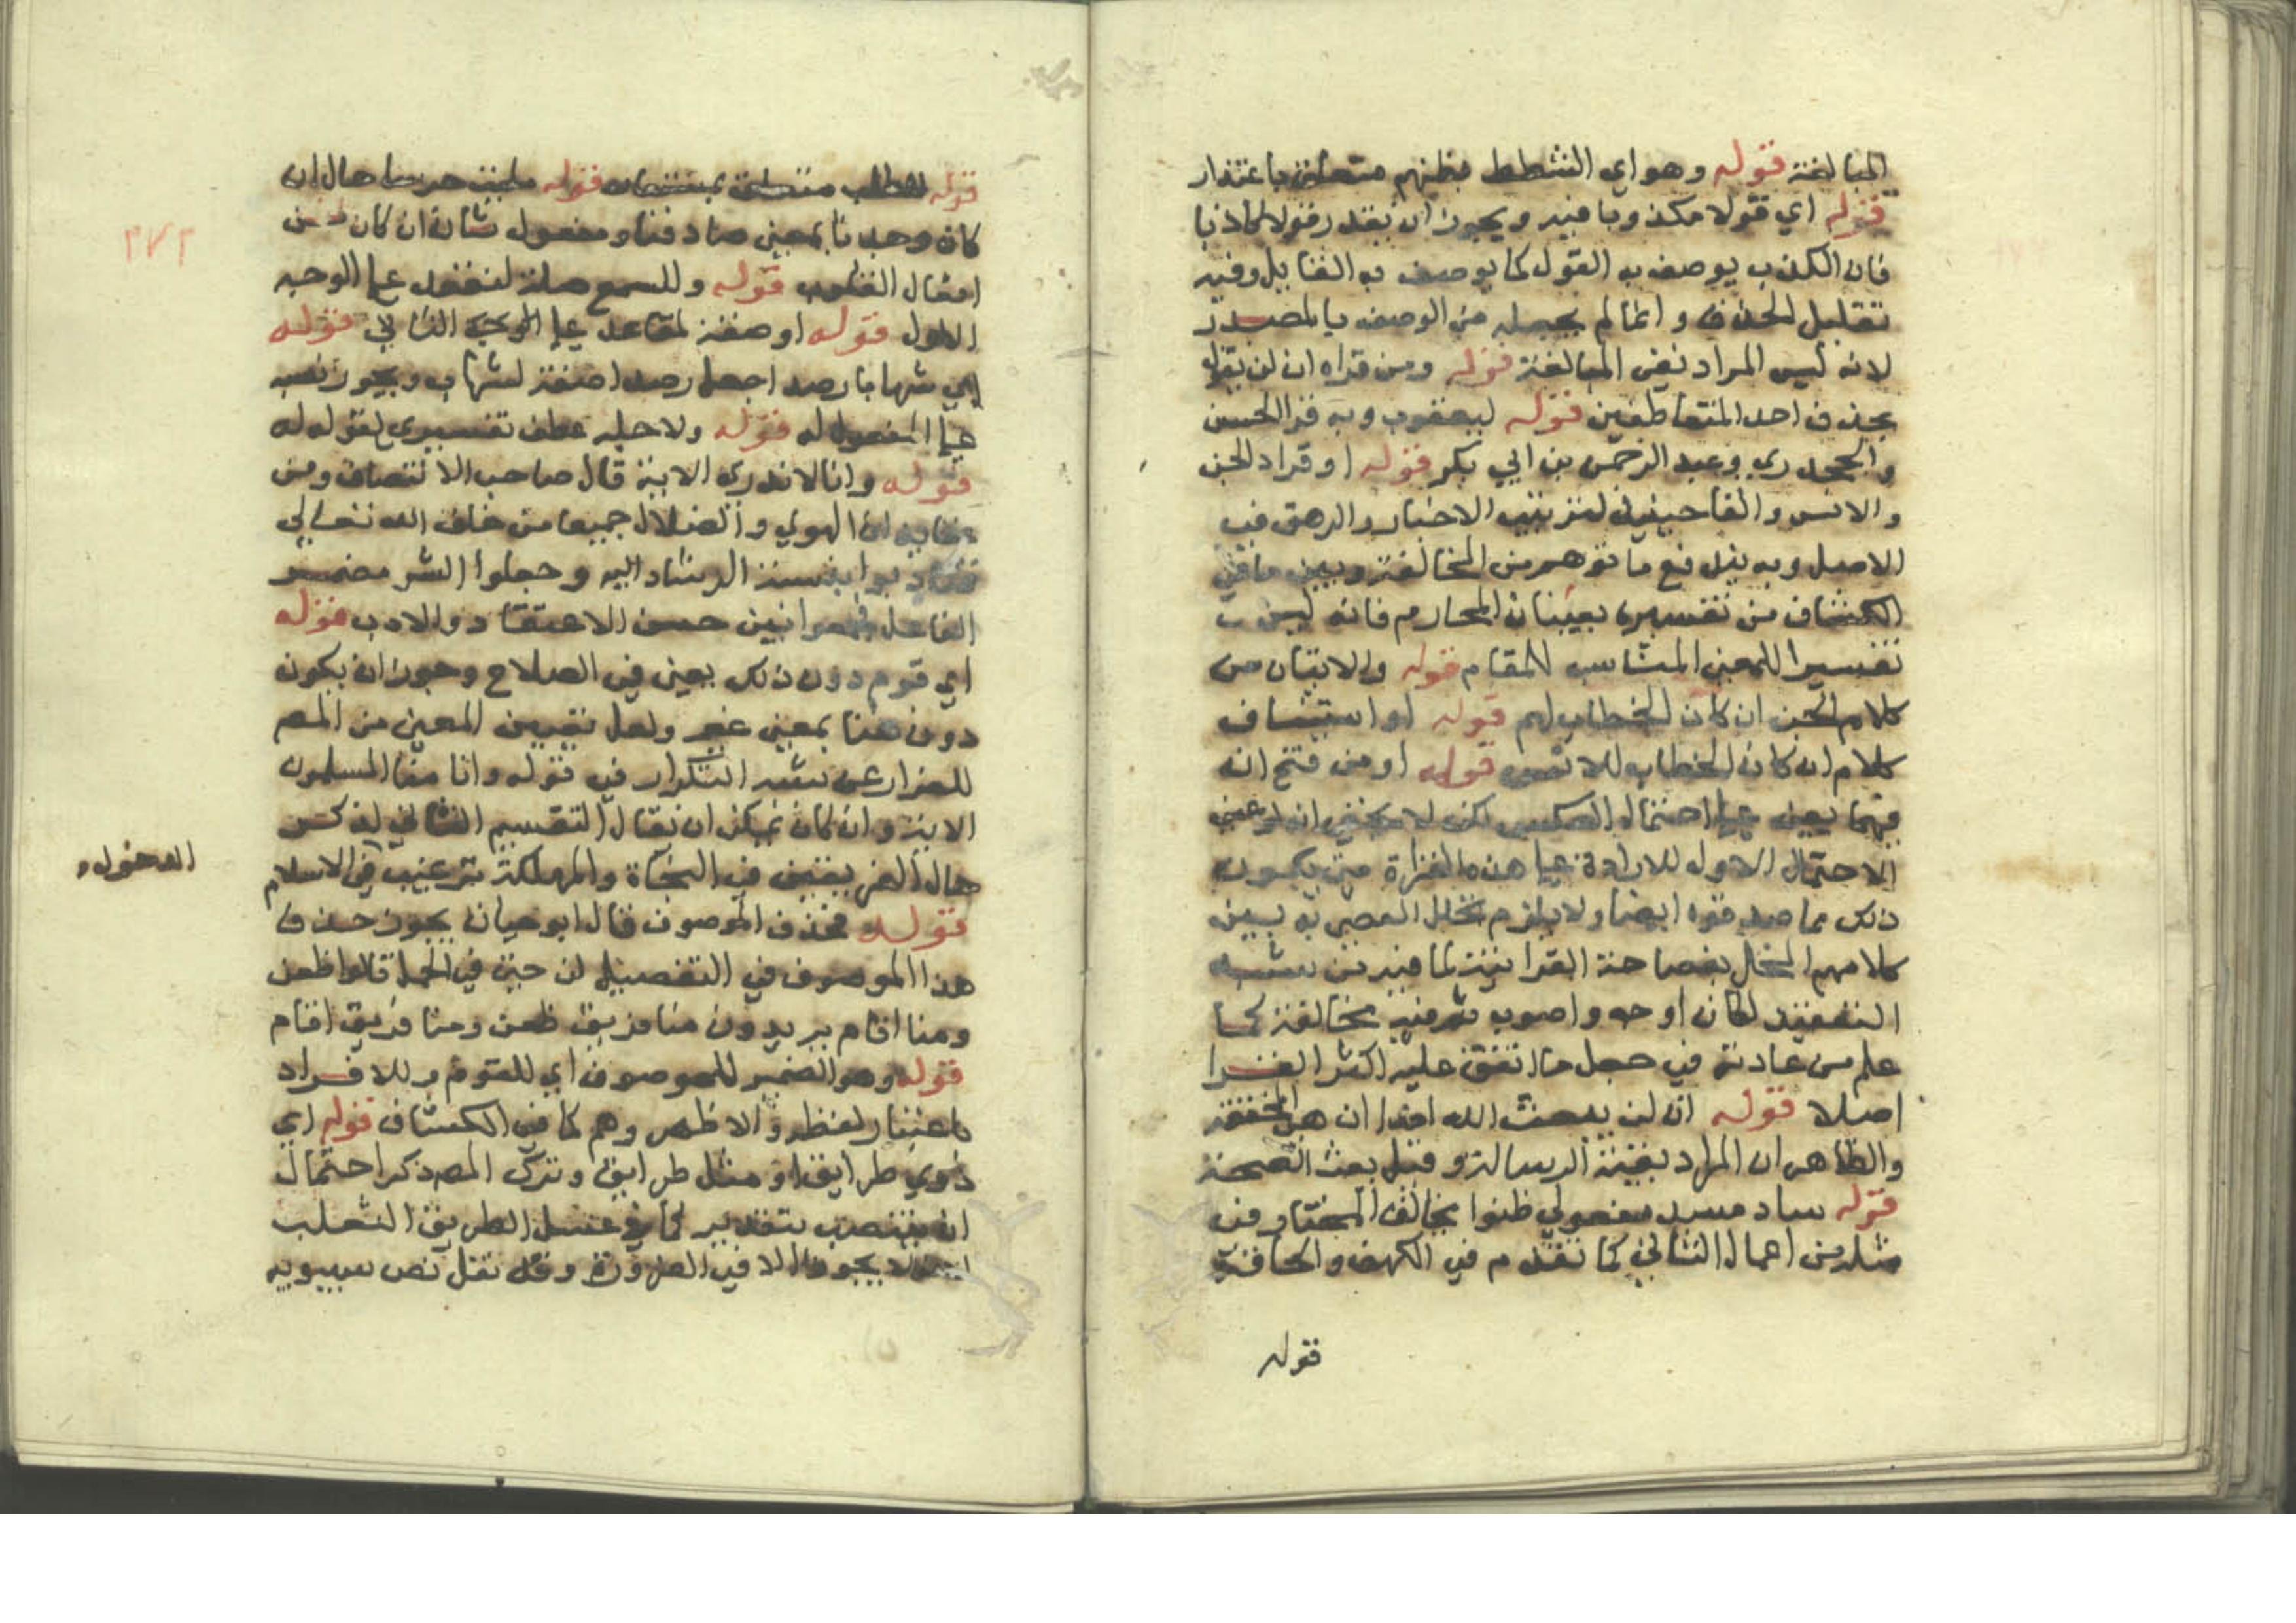 المبالغة قوله وهو اي الشطط فظنهم متعلق باعتذار
قوله اي قولا مكذوبا فيه ويجوز ان يقدر قولا كاذبا
فان الكذب يوصف به القول كما يوصف به القايل وفيه
تقليل الحذف وانما لم يجعله من الوصف بالمصدر
لانه ليس المراد نفي المبالغة قوله ومن قراه ان لن تقول
بحذف احد المتعاطفين قوله ليعقوب وبه قرا الحسن
والجحدري وعبد الرحمن بن ابي بكر قوله او فزاد الجن
والانس والفا حينئذ لترتيب الاخبار والرهق في
الاصل وبه يندفع ما توهم من المخالفة وبين ما في
الكشاف من تفسيره بغشيان المحارم فانه ليس
تفسيرا للمعنى المناسب للمقام قوله والايتان من
كلام الجن ان كان الخطاب لهم قوله او استيناف
كلام ان كان الخطاب للانس قوله او من فتح ان
فيهما يعني على احتمال العكس لكن لا يخفى ان
الاحتمال الاول للارادة على هذه القراة حتى يكون
ذلك مما صدقوه ايضا ولا يلزم تخلل العصر به بين
كلامهم المخل بفصاحة القرانية لما فيه من شبه
التعقيد لكان اوجه واصوب ثم فيه مخالفة لما
علم من عادته في جعل ما اتفق عليه اكثر القرا
اصلا قوله ان لن يبعث الله احدا ان هي المخففة
والظاهر ان المراد بعثة الرسالة وقيل بعث القيمة
قوله ساد مسد مفعولي ظنوا يخالف المختار في
مثله من اعمال الثاني كما تقدم في الكهف والحاقة
قوله
٢٧٢
قوله قوله ملئت حرسا حال ان
كان وجدنا بمعنى صادفنا ومفعول ثان ان كان من
افعال القلوب قوله وللسمع صلة لنقعد على الوجه
الاول قوله او صفة لمقاعد على الوجه الثاني قوله
اي شهابا رصدا جعل رصدا صفة لشهاب ويجوز نصبه
على المفعول له قوله ولاجله عطف تفسيري لقوله له
قوله وانا لا ندري الاية قال صاحب الانتصاف ومن
عقايد ان الهوى والضلال جميعا من خلق الله تعالى
فتادبوا بنسبة الرشاد اليه وجعلوا الشر مضمر
الفاعل فجمعوا بين حسن الاعتقاد والادب قوله
اي قوم دون ذلك يعني في الصلاح وجوز ان يكون
دون هنا بمعنى غير ولعل تعيين المعنى من المص
للفرار عن شبه التكرار في قوله وانا منا المسلمون
الاية وان كان يمكن ان يقال التقسيم الثاني لذكر
حال الفريقين في النجاة والهلكة ترغيب في الاسلام
المدخول و
قوله فحذف الموصوف قال ابو حيان يجوز حذف
هذا الموصوف في التفصيل لن حتى في الجمل قالوا ظعن
ومنا اقام يريدون منا فريق ظعن ومنا فريق اقام
قوله وهو الضمير للموصوف اي للقوم وللافراد
باعتبار لفظه والاظهر وهم كما في الكشاف قوله اي
ذوي طرايق او مثل طرايق وترك المص ذكر احتمال
ان ينتصب بتقدير كما عسل الطريق الثعلب
لا يجوز الا في الضرورة وقد نقل نص سيبويه